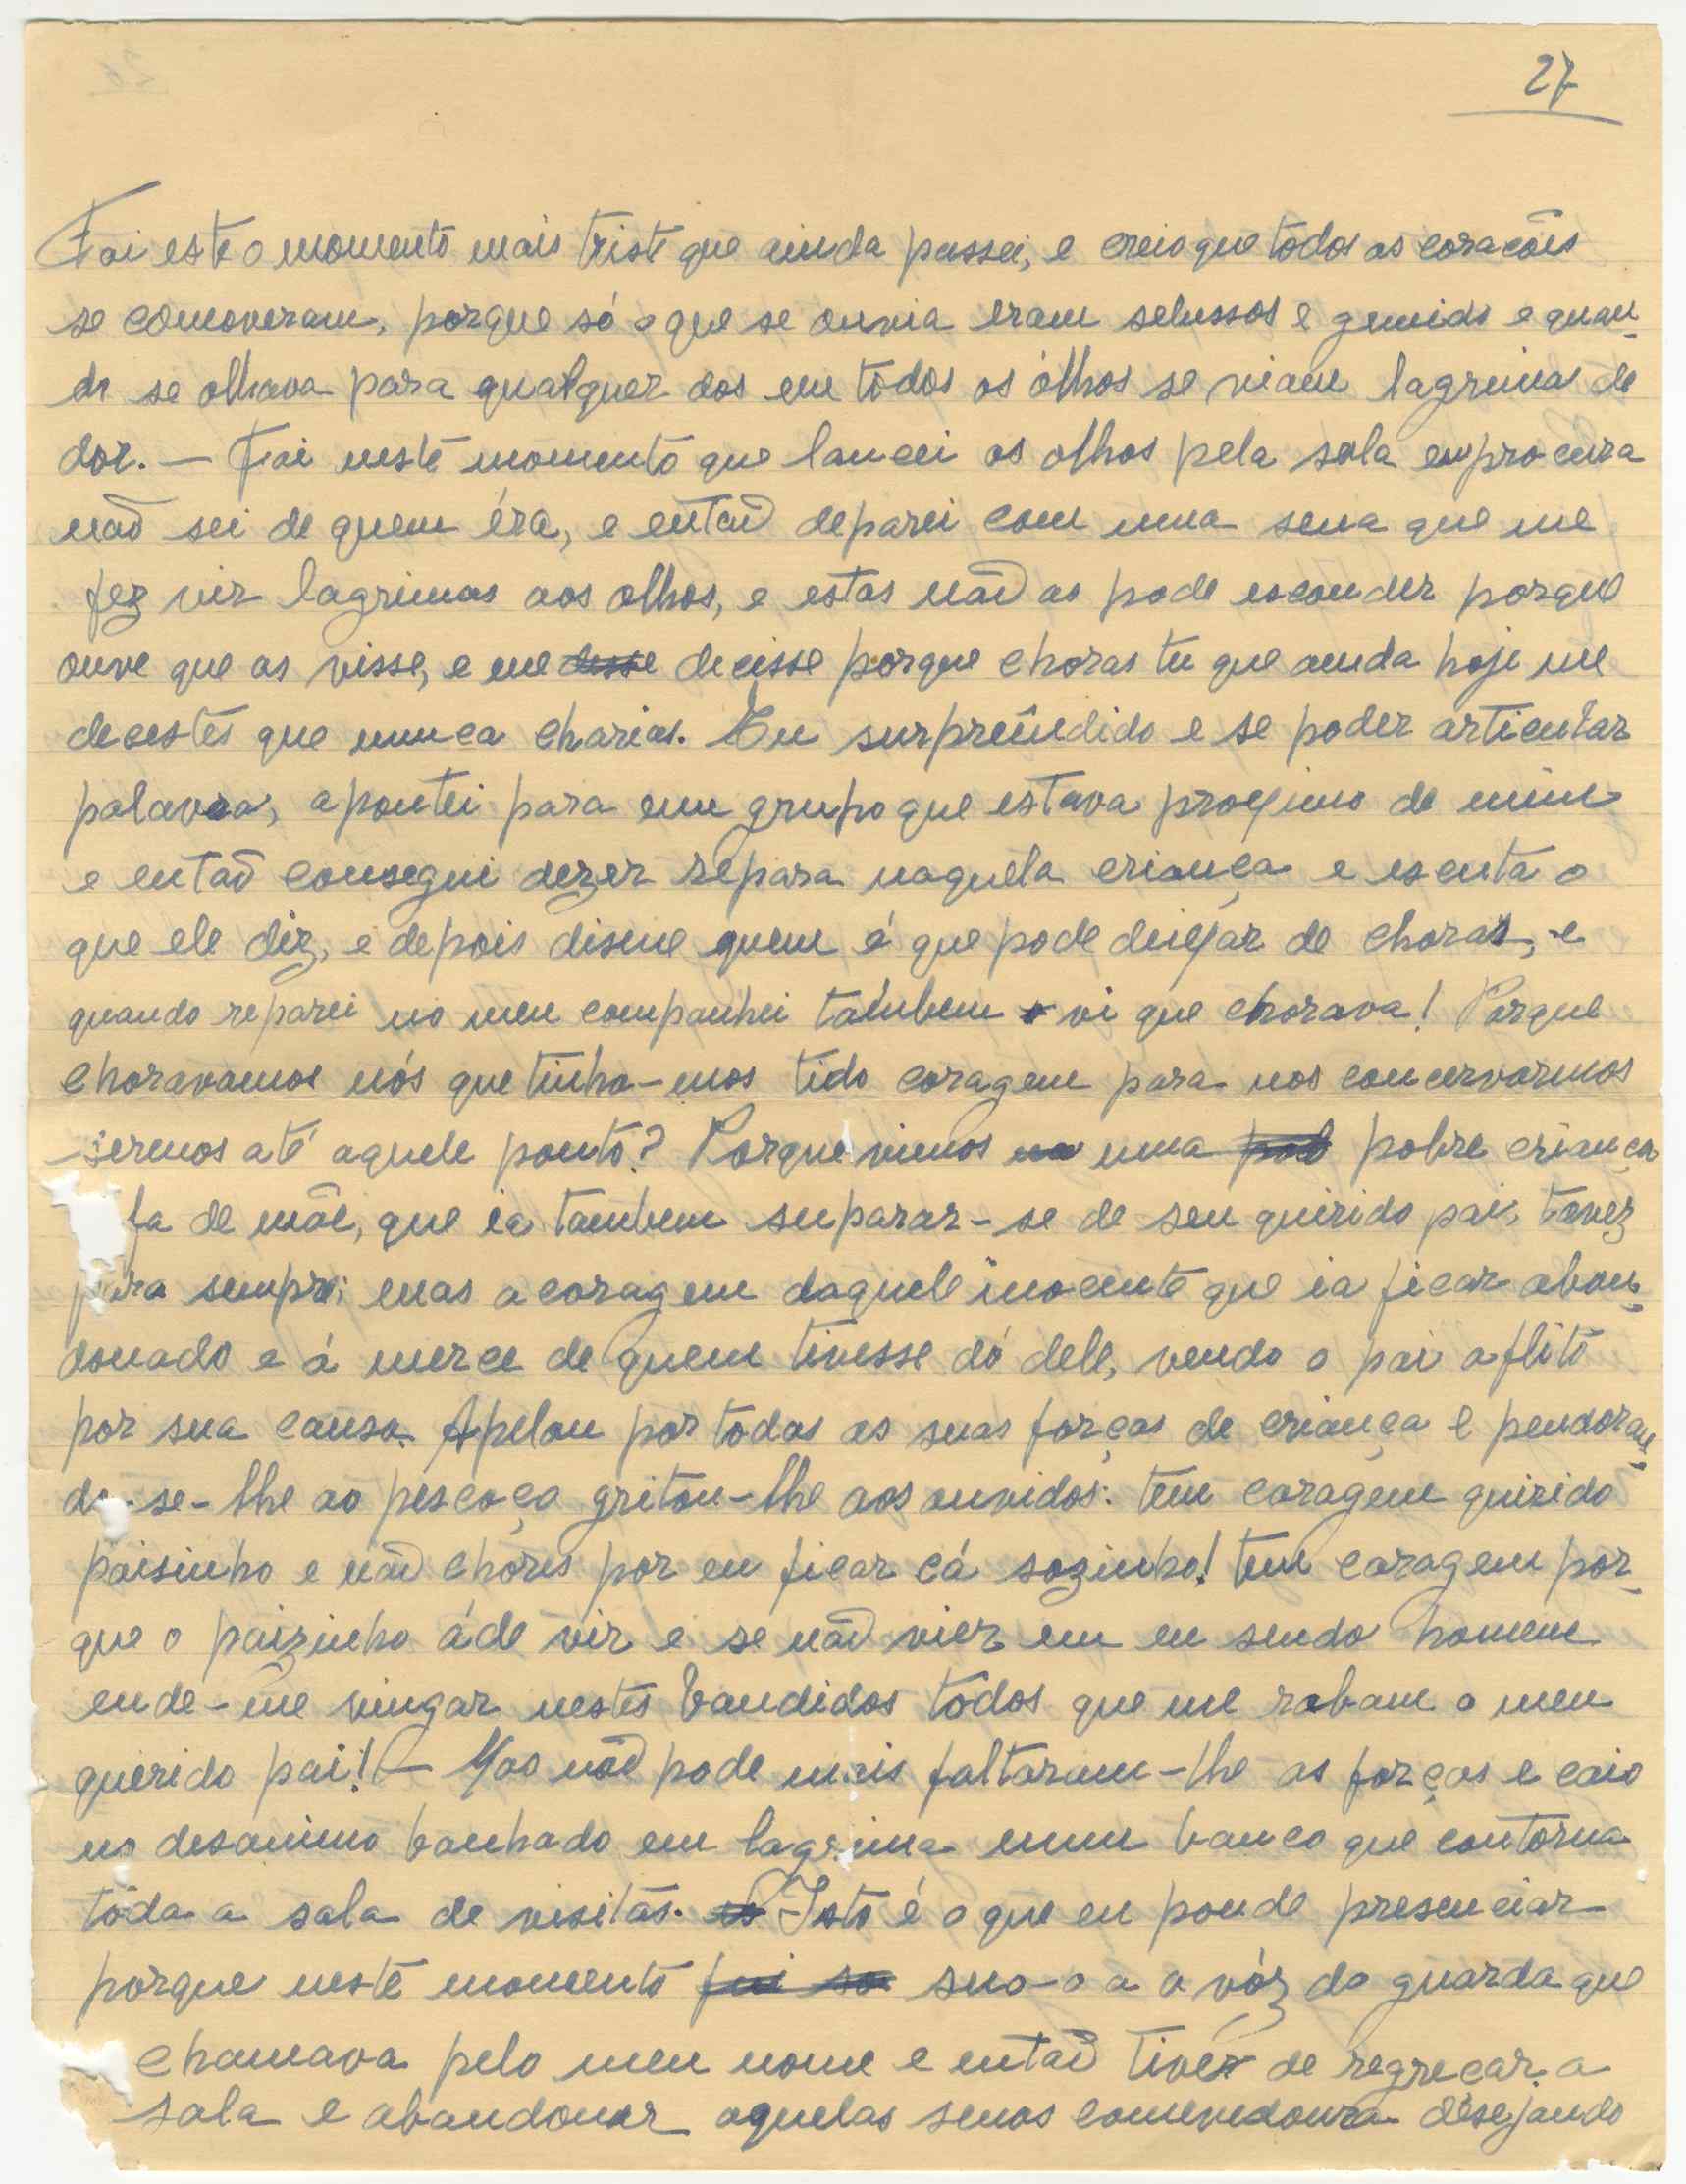 27
Foi este o momento mais triste que ainda passei, e creio que todos os coracões
se comoveram, porque só o que se ouvia eram selussos e gemido e quan-
do se olhava para qualquer dos em todos os ólhos se viam lagrima de
dor. — Foi neste momento que lancei os olhos pela sala em procura
não sei de quem éra, e então deparei com uma sena que me
fez vir lagrimas aos olhos, e estas não as pode esconder porque
ouve que as visse, e me desse decisse porque choras tu que ainda hoje me
decestes que nunca charias. Eu surpreûndido e se poder articular
palavra, apontei para um grupo que estava proximo de mim
e então consegui dezer repara naquela criança e escuta o
que ele diz, e depois disme quem é que pode deixar de chorar, e
quando reparei no meu companhei também vi que chorava! Porque
choravamos nós que tinha-mos tido coragem para nos concervarmos
seremos até aquele ponto? Porque vimos uma pob pobre criança
fa de mãe, que ia tambem suparar-se de seu quirido pai, tavez
para sempre; mas a coragem daquele inocente que ia ficar aban-
donado e á merce de quem tivesse dó dele, vendo o pai aflito
por sua causa. Apelou por todas as suas forças de criança e pendoran-
do-se-lhe ao pescoço gritou-lhe aos ouvidos: tem coragem quirido
paisinho e não chores por eu ficar cá sozinho! tem coragem por-
que o paizinho áde vir e se não vier em eu sendo homem
ende-me vingar nestes bandidos todos que me robam o meu
querido pai! — Mas não pode mais faltaram-lhe as forças e caio
no desanimo banhado em lagrima num banco que contorna
tôda a sala de visitas. Isto é o que eu poude presenciar
porque neste momento fui so suo-o a a vóz do guarda que
chamava pelo meu nome e então tiver de regreçar a
sala e abandonar aquelas senas comevedoura desejando